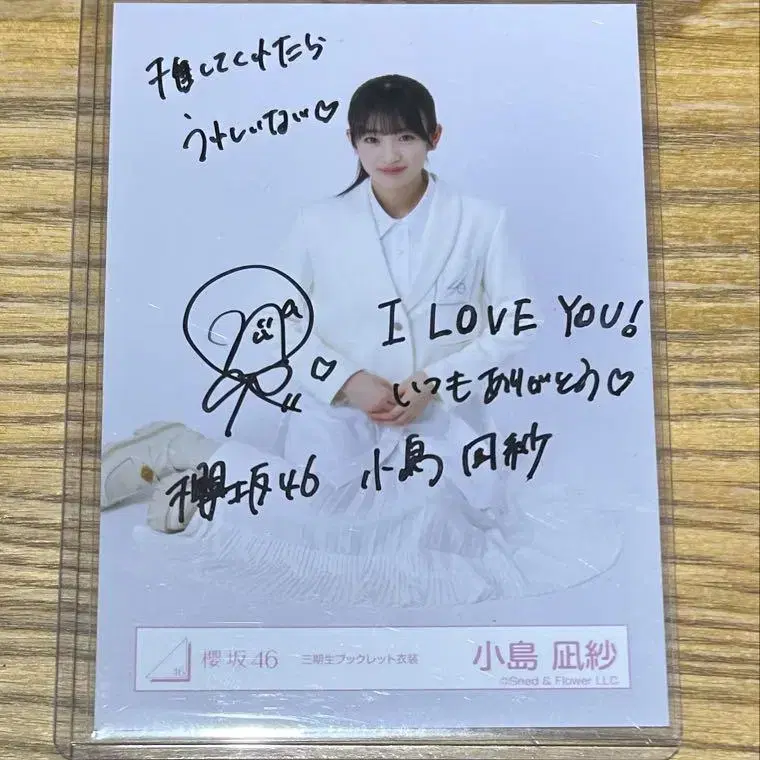 推してくれたら
うれしいな♡
I LOVE YOU!
いつもありがとう♡
櫻坂46 小島 凪紗
46
46 櫻坂46 三期生ブックレット衣装 小島 凪紗
©Seed & Flower LLC